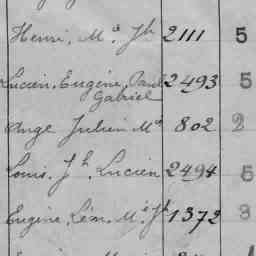 Henri, Mie Jh 2111 5
Lucien, Eugène, Paul 2493 5
Gabriel
Ange Julien Mie 802 2
Louis, Jh, Lucien 2494 5
Eugène, Léon, Mie Jh 1372 3